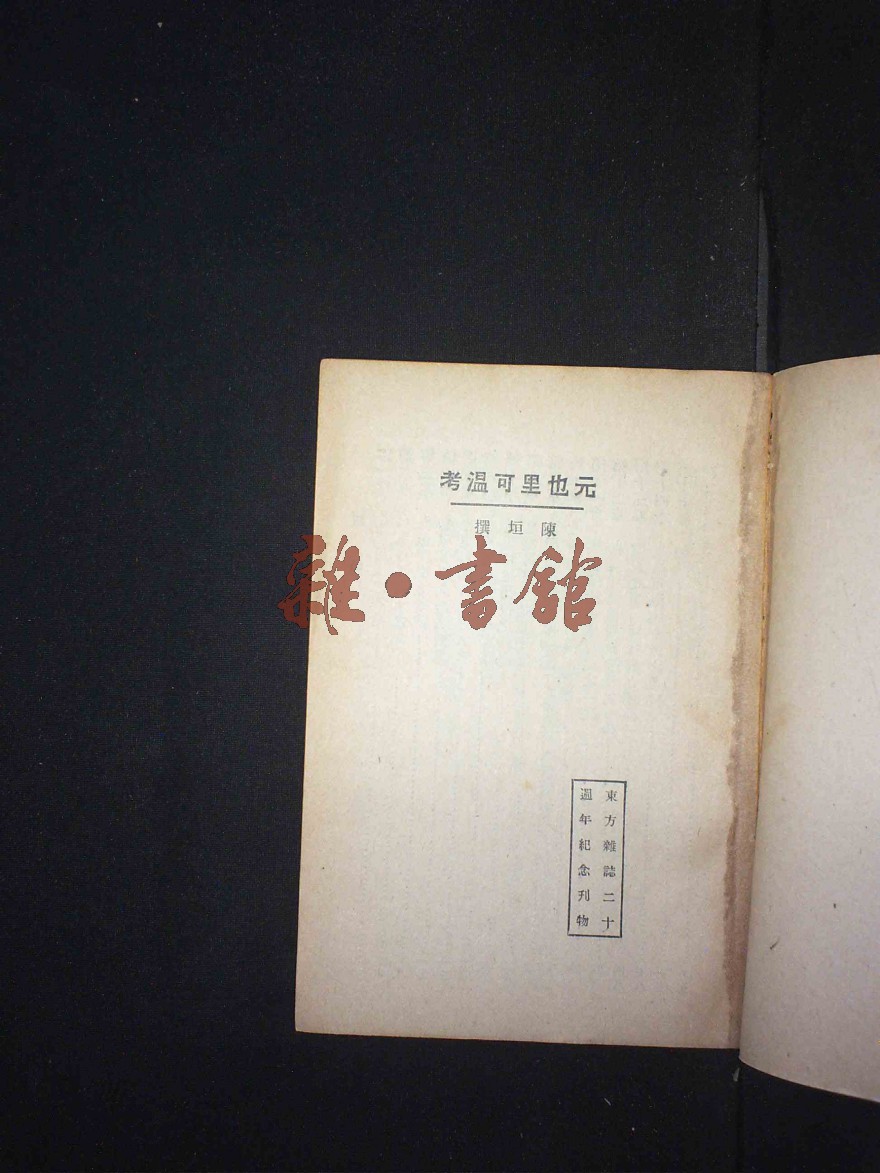 元也里可温考
陳垣撰
雜·書館
東方雜誌二十
週年紀念刊物